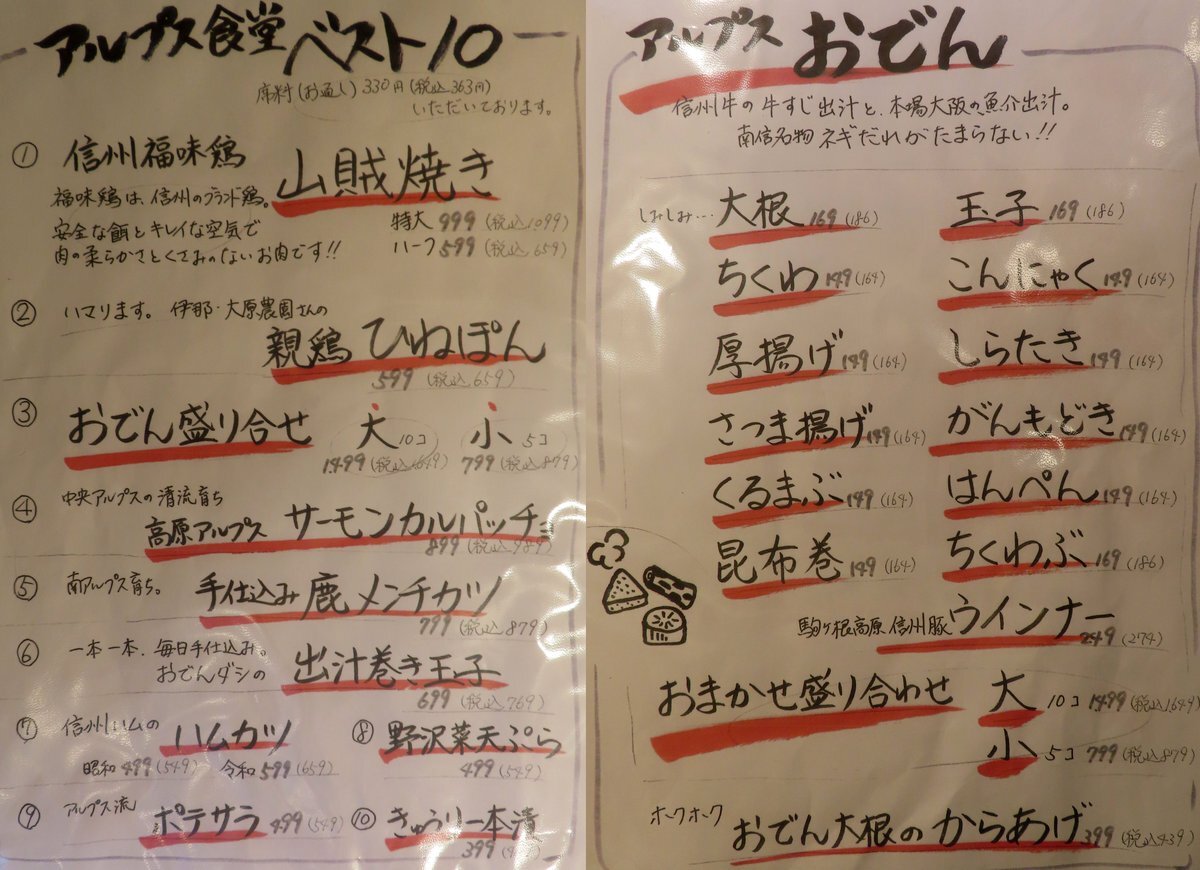 アルプス食堂 ベスト10
席料(お通し)330円(税込363円)
いただいております。
① 信州福味鶏 山賊焼き
福味鶏は、信州のブランド鶏。
安全な餌とキレイな空気で
肉の柔らかさとくさみのないお肉です!!
特大 999(税込1099)
ハーフ 599(税込659)
② ハマります。伊那・大原農園さんの
親鶏 ひねぽん
599(税込659)
③ おでん盛り合せ 大 10コ 小 5コ
1499(税込1649) 799(税込879)
④ 中央アルプスの清流育ち
高原アルプス サーモンカルパッチョ
899(税込989)
⑤ 南アルプス育ち。手仕込み 鹿メンチカツ
799(税込879)
⑥ 一本一本、毎日手仕込み。
おでんダシの 出汁巻き玉子
699(税込769)
⑦ 信州ハムの ハムカツ
昭和499(549) 令和599(659)
⑧ 野沢菜天ぷら
499(549)
⑨ アルプス流 ポテサラ 499(549)
⑩ きゅうり一本漬
399
アルプス おでん
信州牛の牛すじ出汁と、本場大阪の魚介出汁。
南信名物 ネギだれがたまらない!!
しみしみ… 大根 169(186) 玉子 169(186)
ちくわ 149(164) こんにゃく 149(164)
厚揚げ 149(164) しらたき 149(164)
さつま揚げ 149(164) がんもどき 149(164)
くるまぶ 149(164) はんぺん 149(164)
昆布巻 149(164) ちくわぶ 169(186)
駒ヶ根高原 信州豚 ウインナー
249(274)
おまかせ盛り合わせ 大 10コ 1499(税込1649)
小 5コ 799(税込879)
ホクホク おでん大根の からあげ 399(税込439)